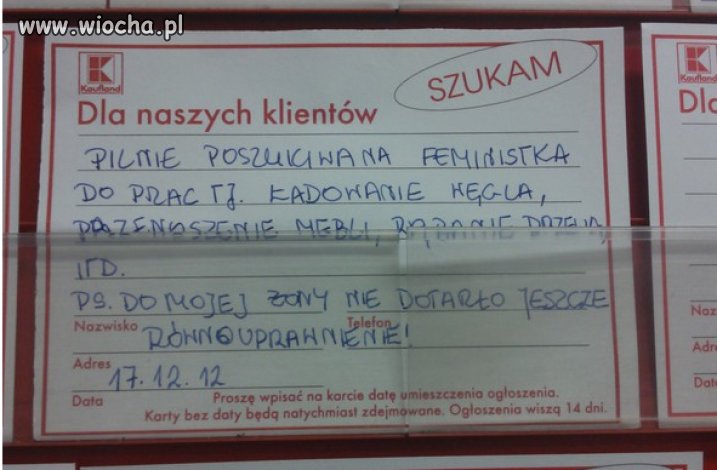 www.wiocha.pl
K
Kaufland
SZUKAM
Dla naszych klientów
PILNIE POSZUKIWANA FEMINISTKA
DO PRAC TJ. ŁADOWANIE WĘGLA,
PRZENOSZENIE MEBLI, RĄBANIE DRZEWA,
ITD.
PS. DO MOJEJ ŻONY NIE DOTARŁO JESZCZE
Nazwisko Telefon
RÓWNOUPRAWNIENIE!
Adres
17.12.12
Data
Proszę wpisać na karcie datę umieszczenia ogłoszenia.
Karty bez daty będą natychmiast zdejmowane. Ogłoszenia wiszą 14 dni.
K
Kaufland
Dl
Naz
Adre
Dat